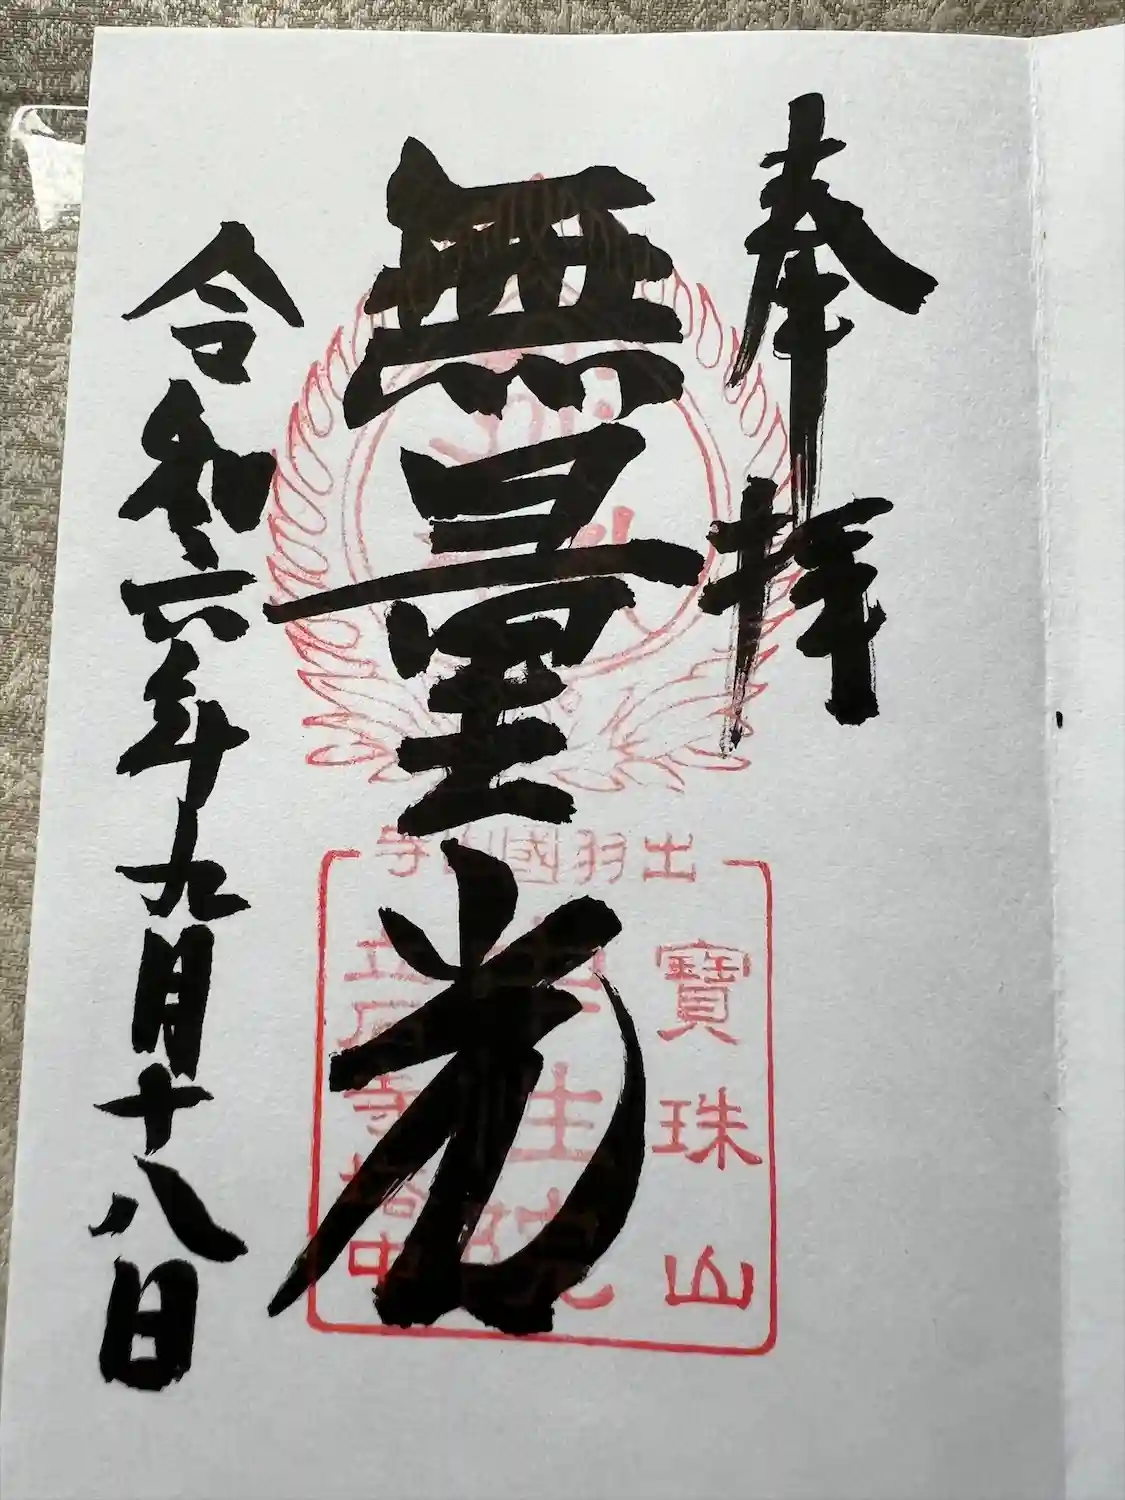 奉拝
無量光
令和六年九月十八日
出羽國山寺
寶珠山
中性院
立石寺塔中